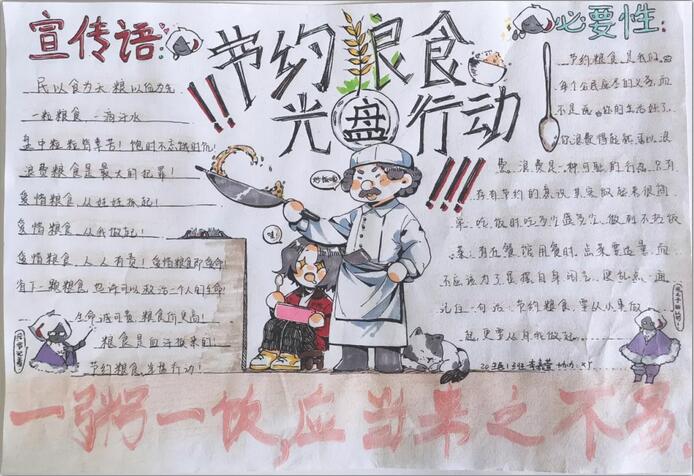 宣传语:
节约粮食
光盘行动
必要性:
民以食为天 粮以俭为先
一粒粮食 一滴汗水
盘中粒粒皆辛苦! 饱时不忘饿时饥!
浪费粮食是最大的犯罪!
爱惜粮食,从娃娃抓起!
爱惜粮食,从我做起!
爱惜粮食,人人有责!爱惜粮食即生命
有了一颗粮食 也许可以救活一个人的生命
生命诚可贵,粮食价更高!
粮食是血汗换来的!
节约粮食,光盘行动!
节约粮食,是我们
每个公民应尽的义务,而
不是说,你的生活好了,
你浪费得起就可以浪
费。浪费是一种可耻的行为,只有
存有节约的意识,其实做起来很简
单:吃饭时吃多少盛多少,做到不扔饭
菜;在餐馆用餐时,点菜要适量,而
不应该为了显摆自身阔气,便乱点一通
记住一句话:节约粮食,要从小事做
起,更要从自我做起。
好饭哦
哇!
一粥一饭,应当来之不易,